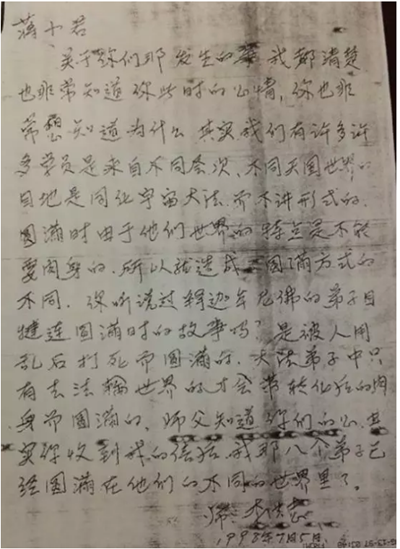 蒋小君
关于你们那发生的事我都清楚
也非常知道你此时的心情，你也非
常想知道为什么 其实我们有许多许
多学员是来自不同层次，不同天国世界
目地是同化宇宙大法 而不讲形式的，
圆满时由于他们世界的特点是不能
要肉身的，所以就造成了圆满方式的
不同，你听说过释迦牟尼佛的弟子目
犍连圆满时的故事吗？是被人用
乱石打死而圆满的，大法弟子中只
有去法轮世界的才会带转化后的肉
身而圆满的，师父知道你们的心，其
实你收到我的信后，我那八个弟子已
经圆满在他们的不同的世界里了。
师 李洪志
1998年7月5日